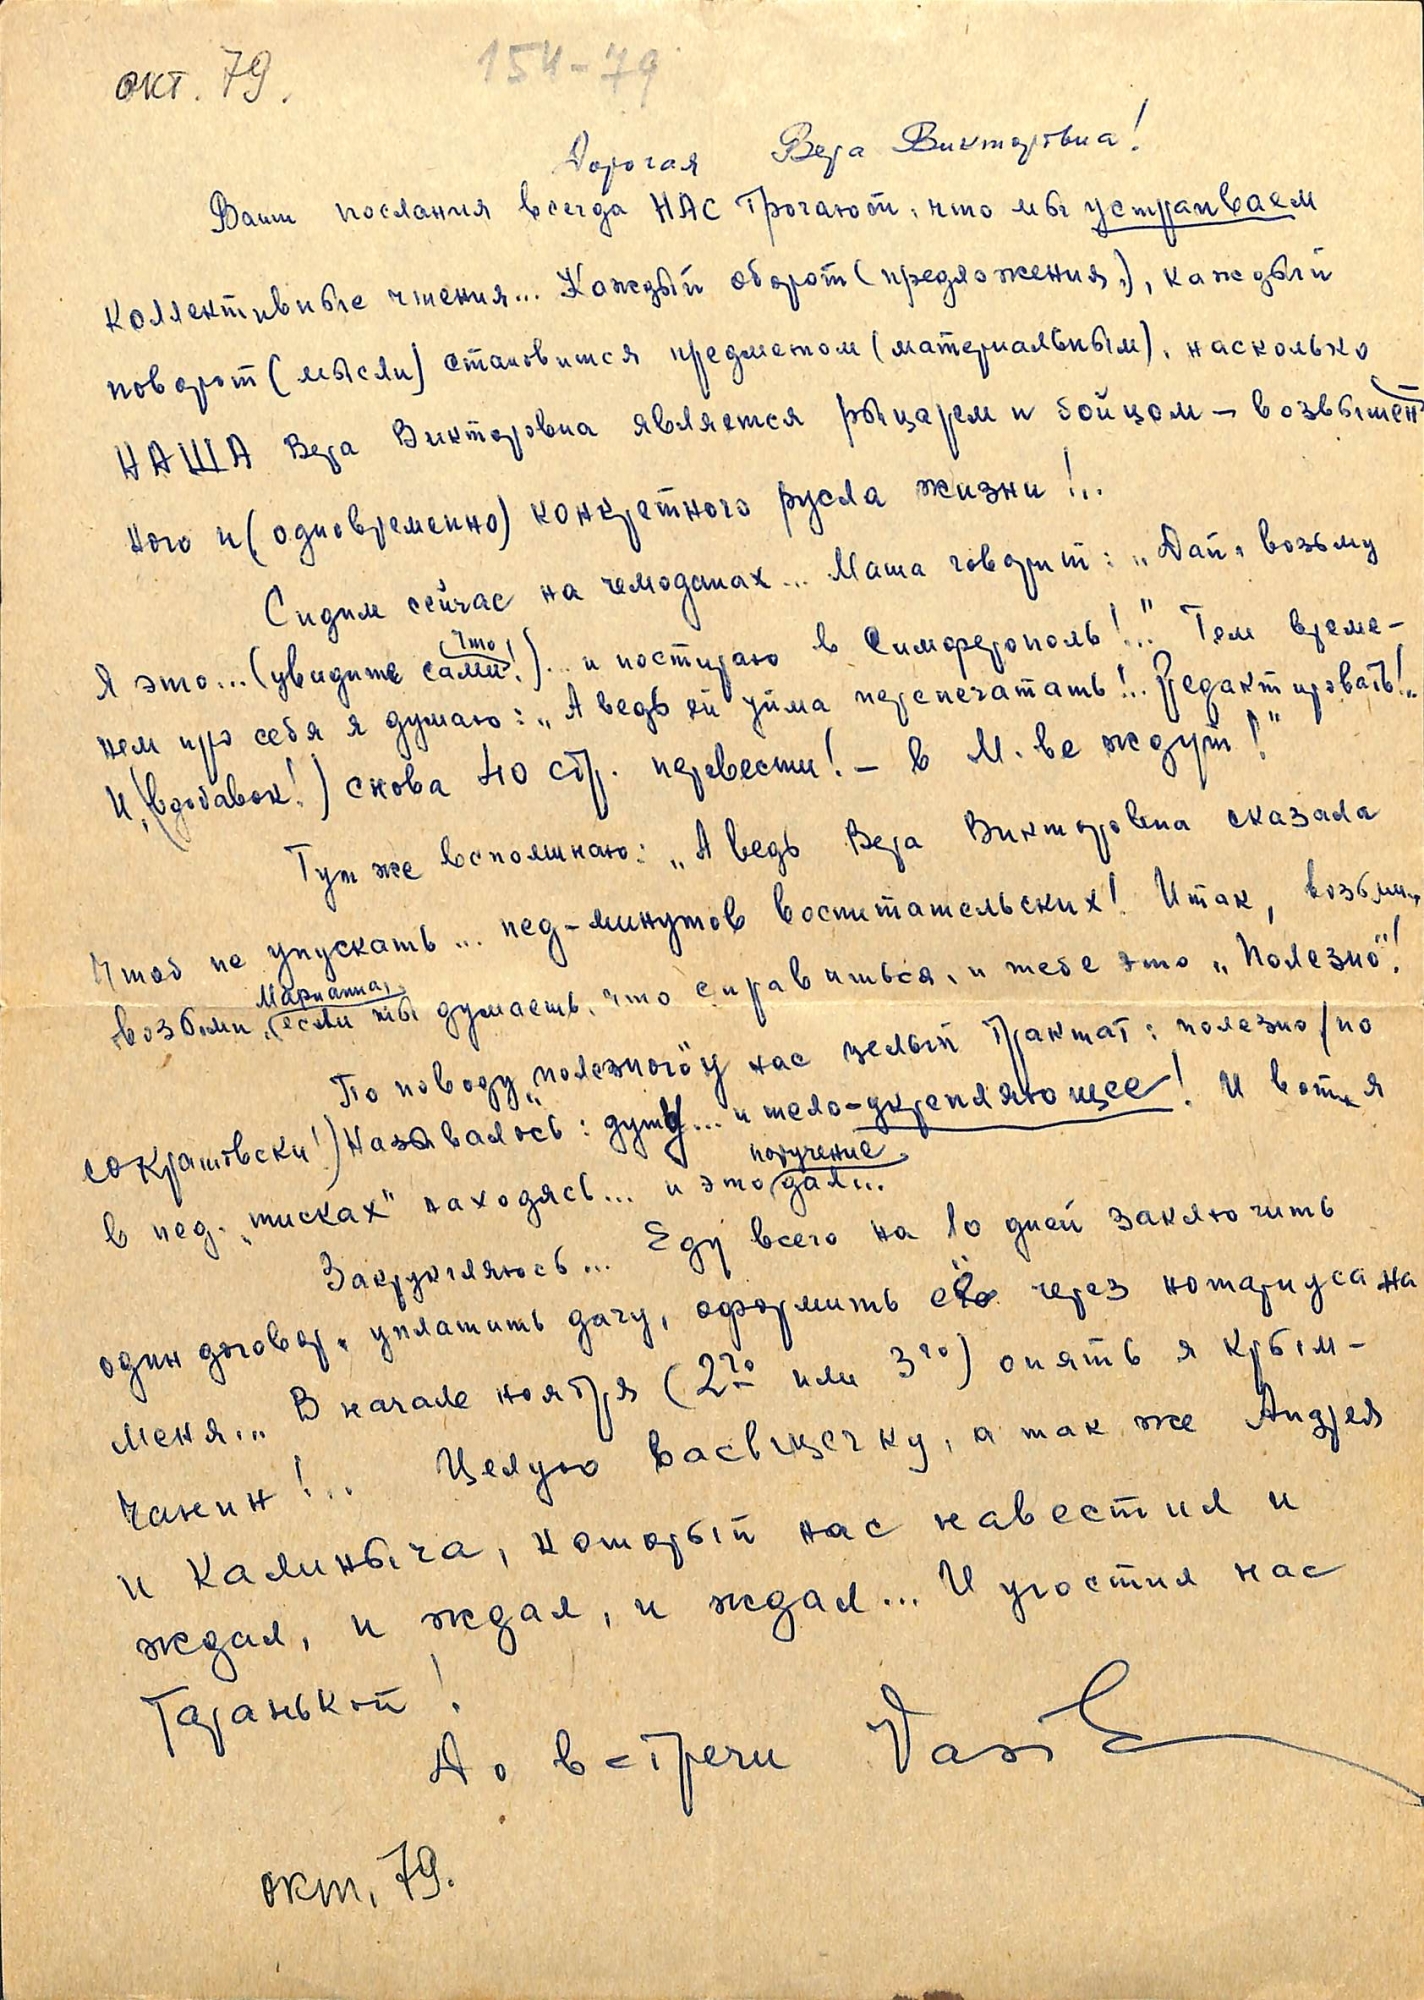 окт. 79.
154-79
Дорогая Вера Викторовна!
Ваши послания всегда НАС трогают, что мы устраиваем
коллективные чтения... Каждый оборот (предложения), каждый
поворот (мысли) становится предметом (материальным), насколько
НАША Вера Викторовна является рыцарем и бойцом – возвышен
ного и (одновременно) конкретного русла жизни!..
Сидим сейчас на чемоданах... Маша говорит: „Дай, возьму
я это... (увидите сами что!)... и постираю в Симферополь!..." Тем време-
нем про себя я думаю: „А ведь ей уйма перепечатать!.. Редактировать!..
И, (вдобавок!) снова 40 стр. перевести! – в М.ве ждут!"
Тут же вспоминаю: „А ведь Вера Викторовна сказала
чтоб не упускать... пед-минутов воспитательских! Итак, возьми,
возьми, (если ты Марианна, думаешь, что справишься, и тебе это „Полезно"!
По поводу „полезного" у нас целый трактат: полезно (по
сократовски!) Называлось: душу... и тело-укрепляющее! И вот, я
в пед. „тисках" находясь... и это поручение дал...
Закругляюсь... Еду всего на 10 дней заключить
один договор, уплатить дачу, оформить её через нотариуса на
меня... В начале ноября (2го или 3го) опять я крым-
чанин!.. Целую Васвицечку, а так же Андрея
и Калиныча, который нас навестил и
ждал, и ждал, и ждал... И угостил нас
Таранькой!
До встречи
окт. 79.